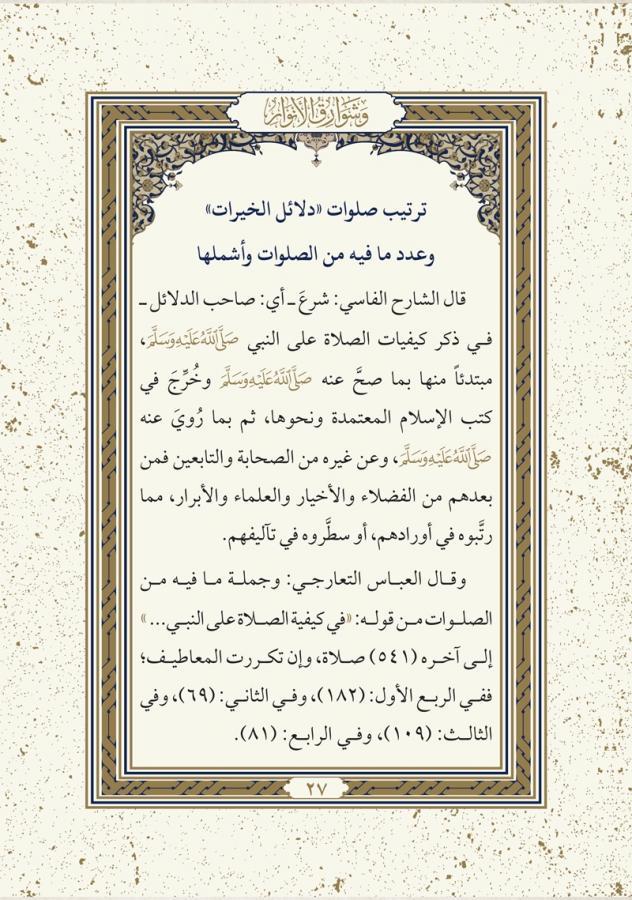 وشوارق الأنوار
ترتيب صلوات «دلائل الخيرات»
وعدد ما فيه من الصلوات وأشملها
قال الشارح الفاسي: شرعَ ـ أي: صاحب الدلائل ـ
في ذكر كيفيات الصلاة على النبي صَلَّى اللَّهُ عَلَيْهِ وَسَلَّمَ،
مبتدئاً منها بما صحَّ عنه صَلَّى اللَّهُ عَلَيْهِ وَسَلَّمَ وخُرِّجَ في
كتب الإسلام المعتمدة ونحوها، ثم بما رُويَ عنه
صَلَّى اللَّهُ عَلَيْهِ وَسَلَّمَ، وعن غيره من الصحابة والتابعين فمن
بعدهم من الفضلاء والأخيار والعلماء والأبرار، مما
رتَّبوه في أورادهم، أو سطَّروه في تآليفهم.
وقال العباس التعارجي: وجملة ما فيه من
الصلوات من قوله: «في كيفية الصلاة على النبي...»
إلى آخره (٥٤١) صلاة، وإن تكررت المعاطيف؛
ففي الربع الأول: (١٨٢)، وفي الثاني: (٦٩)، وفي
الثالث: (١٠٩)، وفي الرابع: (٨١).
٢٧